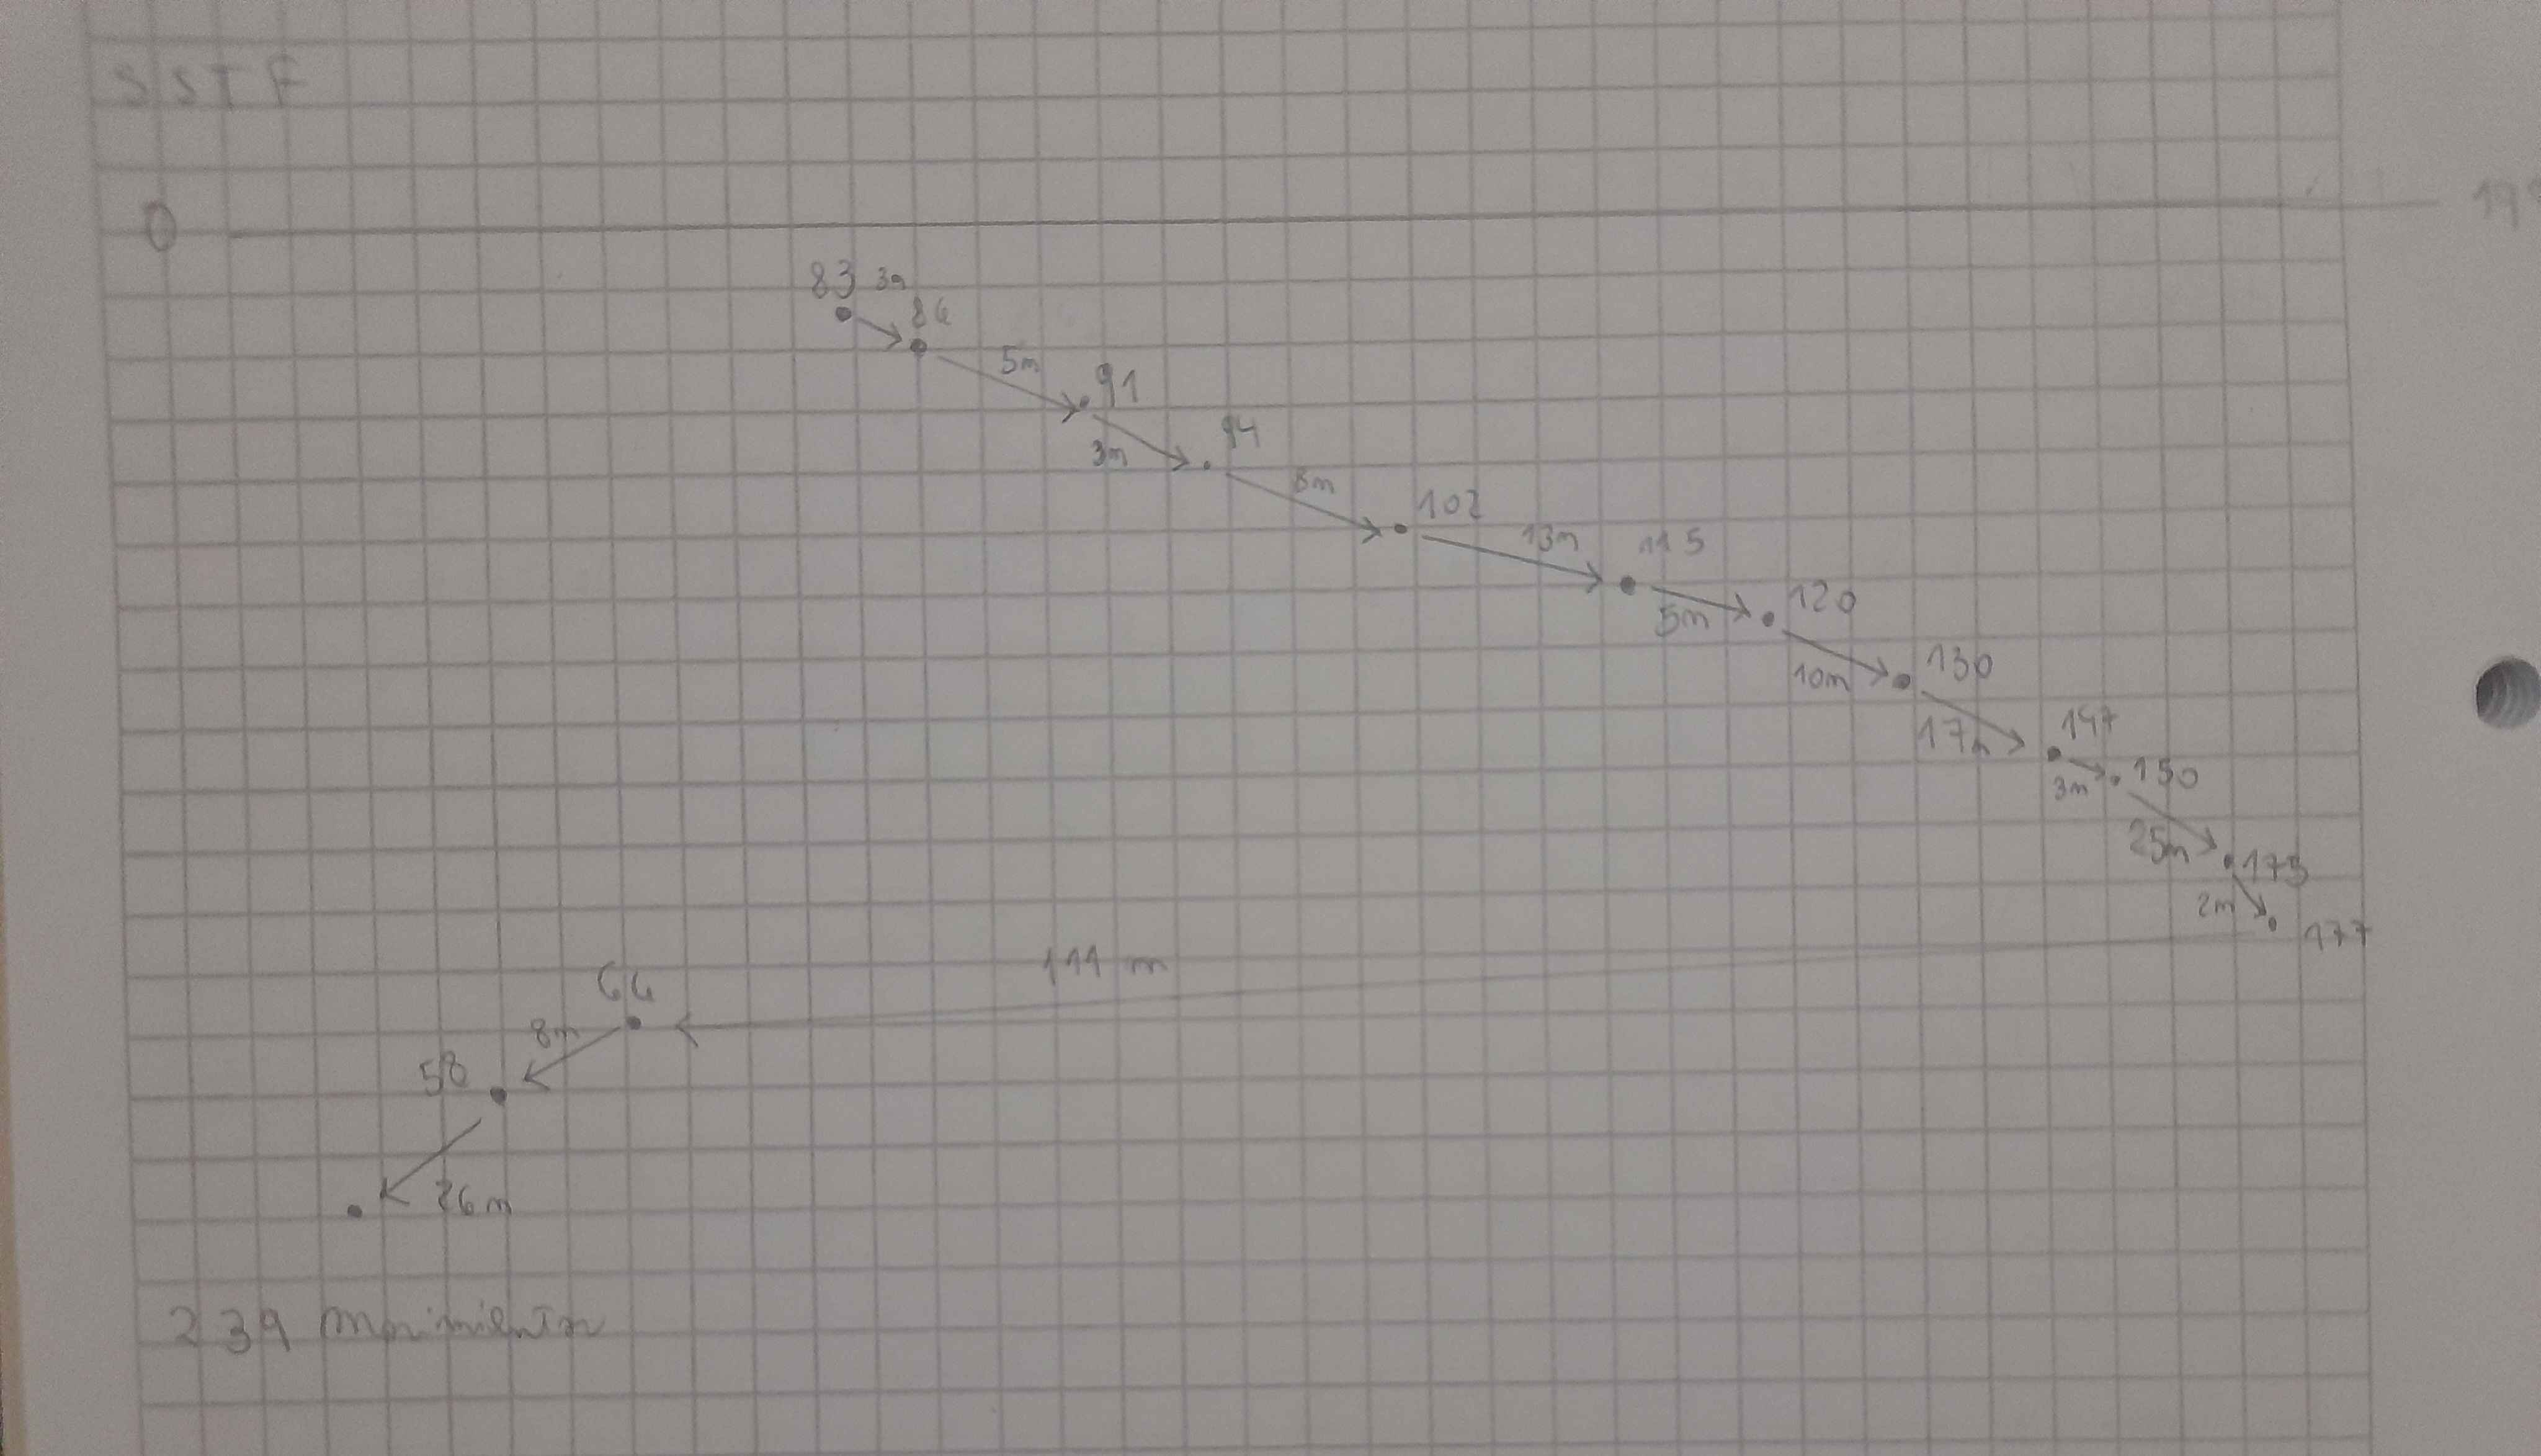 SSTF
0
83 3m
86
5m 91
3m 94
8m 102
13m 115
5m 120
10m 130
17m 147
3m 150
25m 175
2m 177
111 m
66
8m
58
26m
239 movimientos